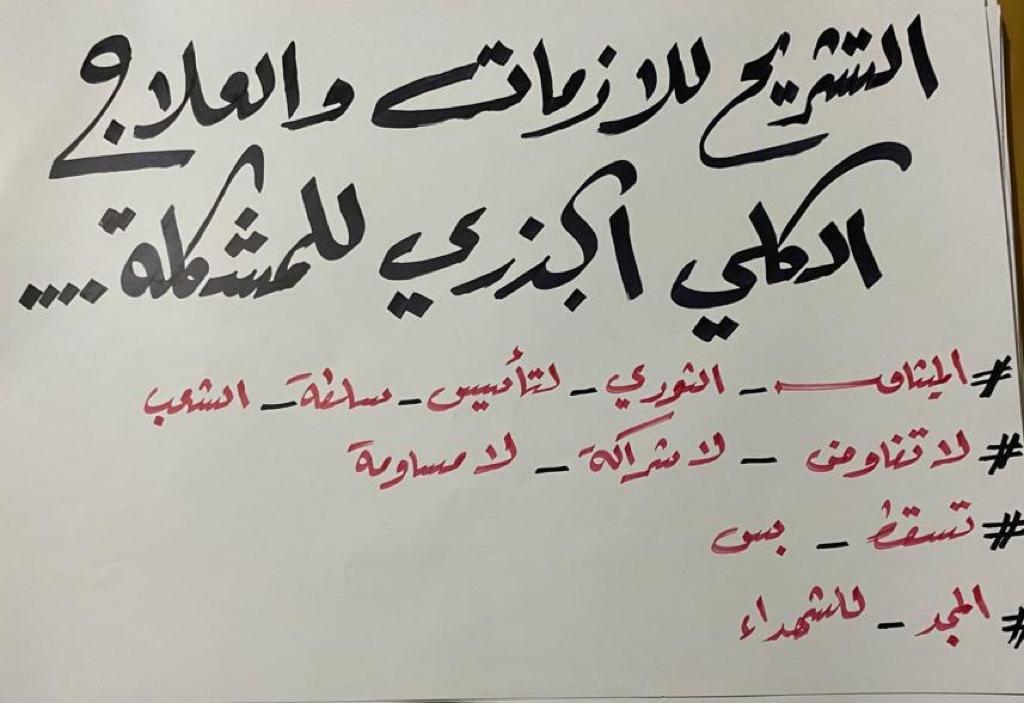 التشريح للازمات والعلاج
الكلي الجذري للمشكلة....
#الميثاق_الثوري_لتأسيس_سلطة_الشعب
#لا تفاوض_لا شراكة_لا مساومة
#تسقط_بس
#المجد_للشهداء